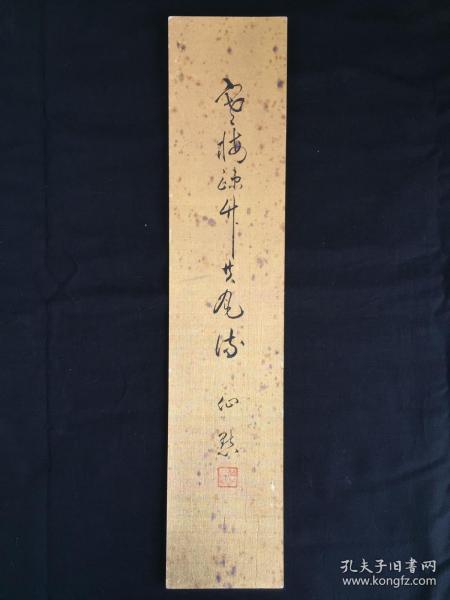 寒梅疎竹共風流
仙黙
孔夫子旧书网
www.kongfz.com